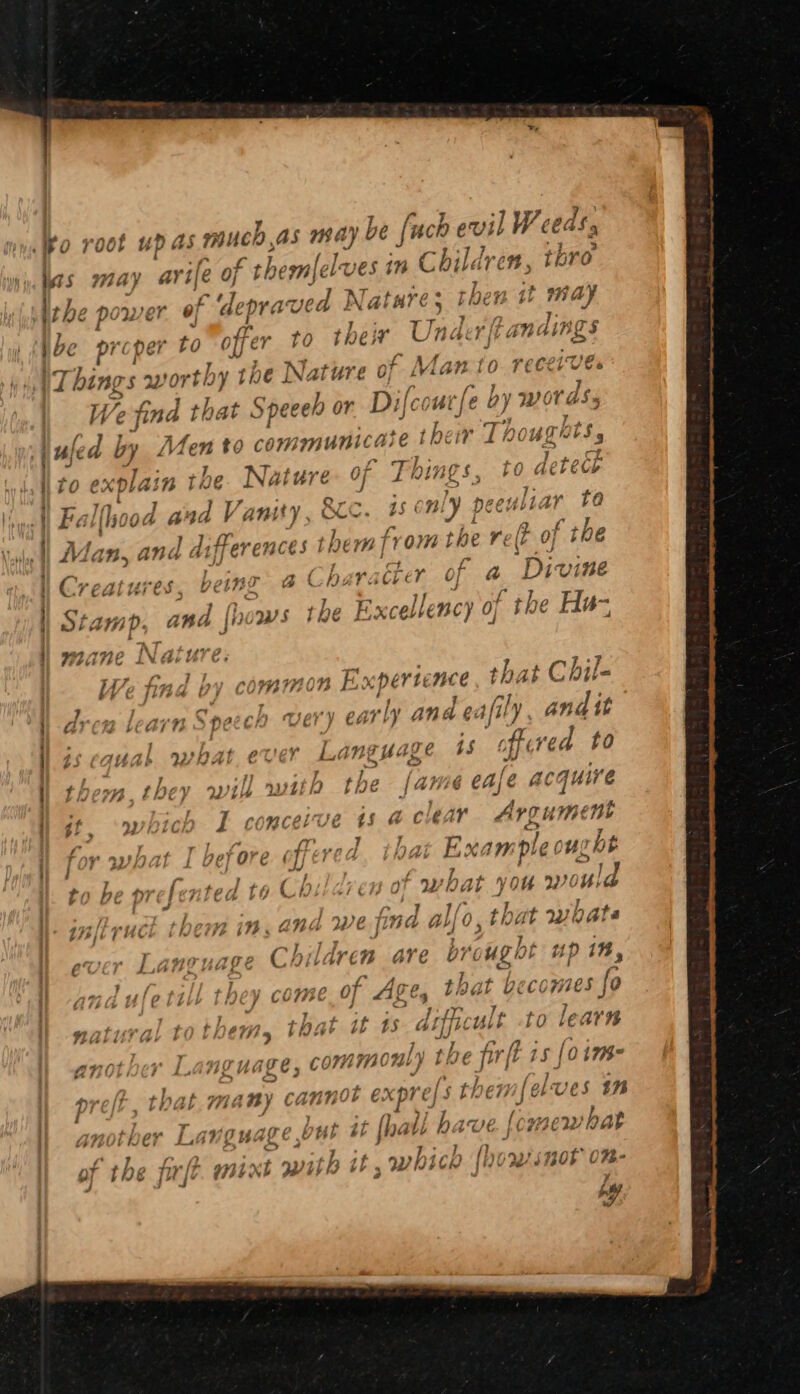 to root up as much as may be ſuch evil Weeds,
as may ariſe of themſelves in Children, thro
the power of depraved Nature; then it may
be proper to offer to their Underſtandings
Things worthy the Nature of Man to receive.
We find that Speech or Diſcourſe by words,
uſed by Men to communicate their Thoughts,
to explain the Nature of Things, to detect
Falſhood and Vanity, &c. is only peculiar to
Man, and differences them from the reſt of the
Creatures, being a Character of a Divine
Stamp, and ſhows the Excellency of the Hu-
mane Nature.
We find by common Experience, that Chil-
dren learn Speech very early and eaſily, and it
is equal what ever Language is offered to
them, they will with the ſame eaſe acquire
it, which I conceive is a clear Argument
for what I before offered, that Example ought
to be preſented to Children of what you would
inſtruct them in, and we find alſo, that what-
ever Language Children are brought up in,
and uſe till they come of Age, that becomes ſo
natural to them, that it is difficult to learn
another Language, commonly the firſt is ſo im-
preſt, that many cannot expreſs themſelves in
another Language, but it ſhall have ſomewhat
of the firſt mixt with it, which ſhows not on-
ly